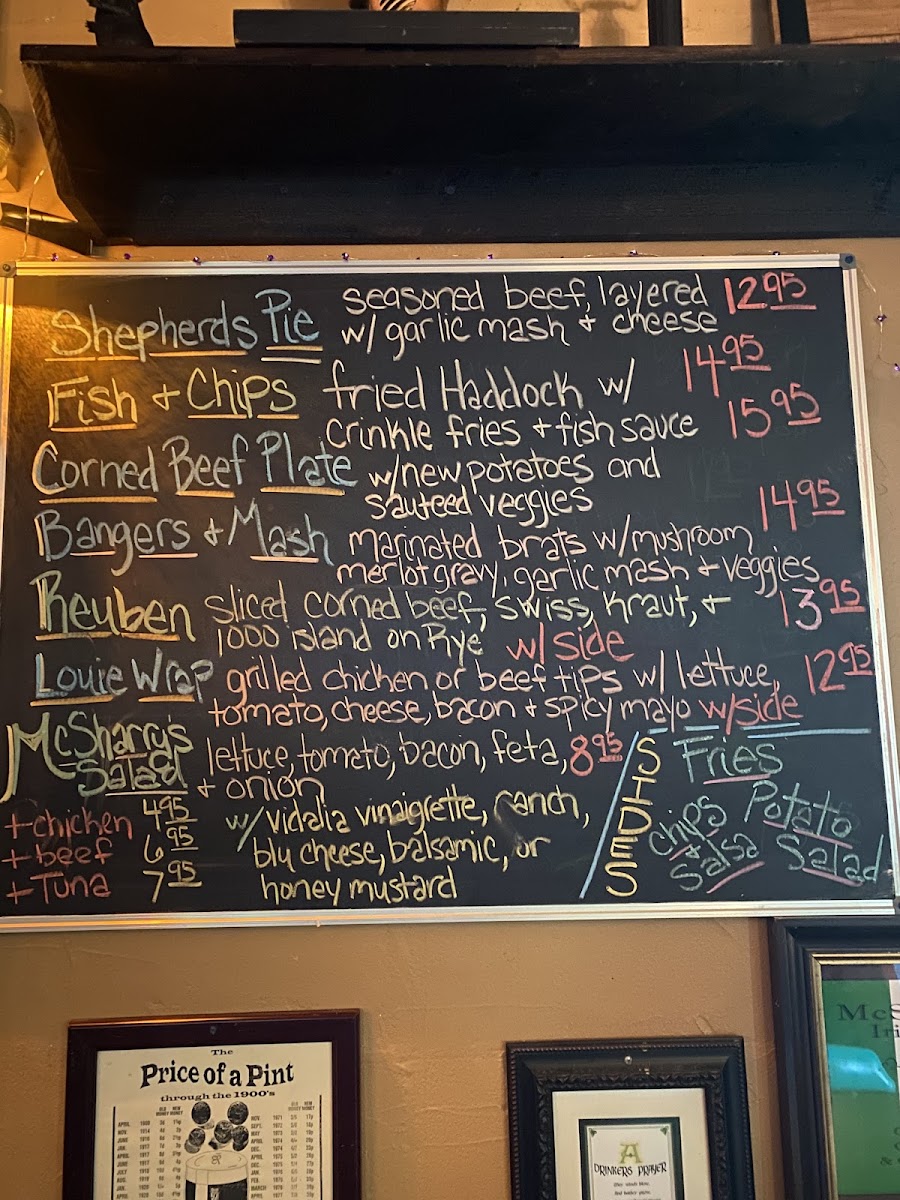 Shepherds Pie seasoned beef, layered 12.95
w/ garlic mash + cheese
Fish + Chips fried Haddock w/ 14.95
crinkle fries + fish sauce
Corned Beef Plate w/ new potatoes and 15.95
sauteed veggies
Bangers + Mash marinated brats w/ mushroom 14.95
merlot gravy, garlic mash + veggies
Reuben sliced corned beef, swiss, kraut, + 13.95
1000 island on Rye w/ side
Louie Wrap grilled chicken or beef tips w/ lettuce, 12.95
tomato, cheese, bacon + spicy mayo w/side
McSharry's Salad lettuce, tomato, bacon, feta, 8.95
+ onion
+chicken 4.95
+beef 6.95
+Tuna 7.95
w/ Vidalia vinaigrette, ranch,
blu cheese, balsamic, or
honey mustard
SIDES
Fries
Chips + Salsa
Potato Salad
The
Price of a Pint
through the 1900's
A
DRINKERS PRAYER